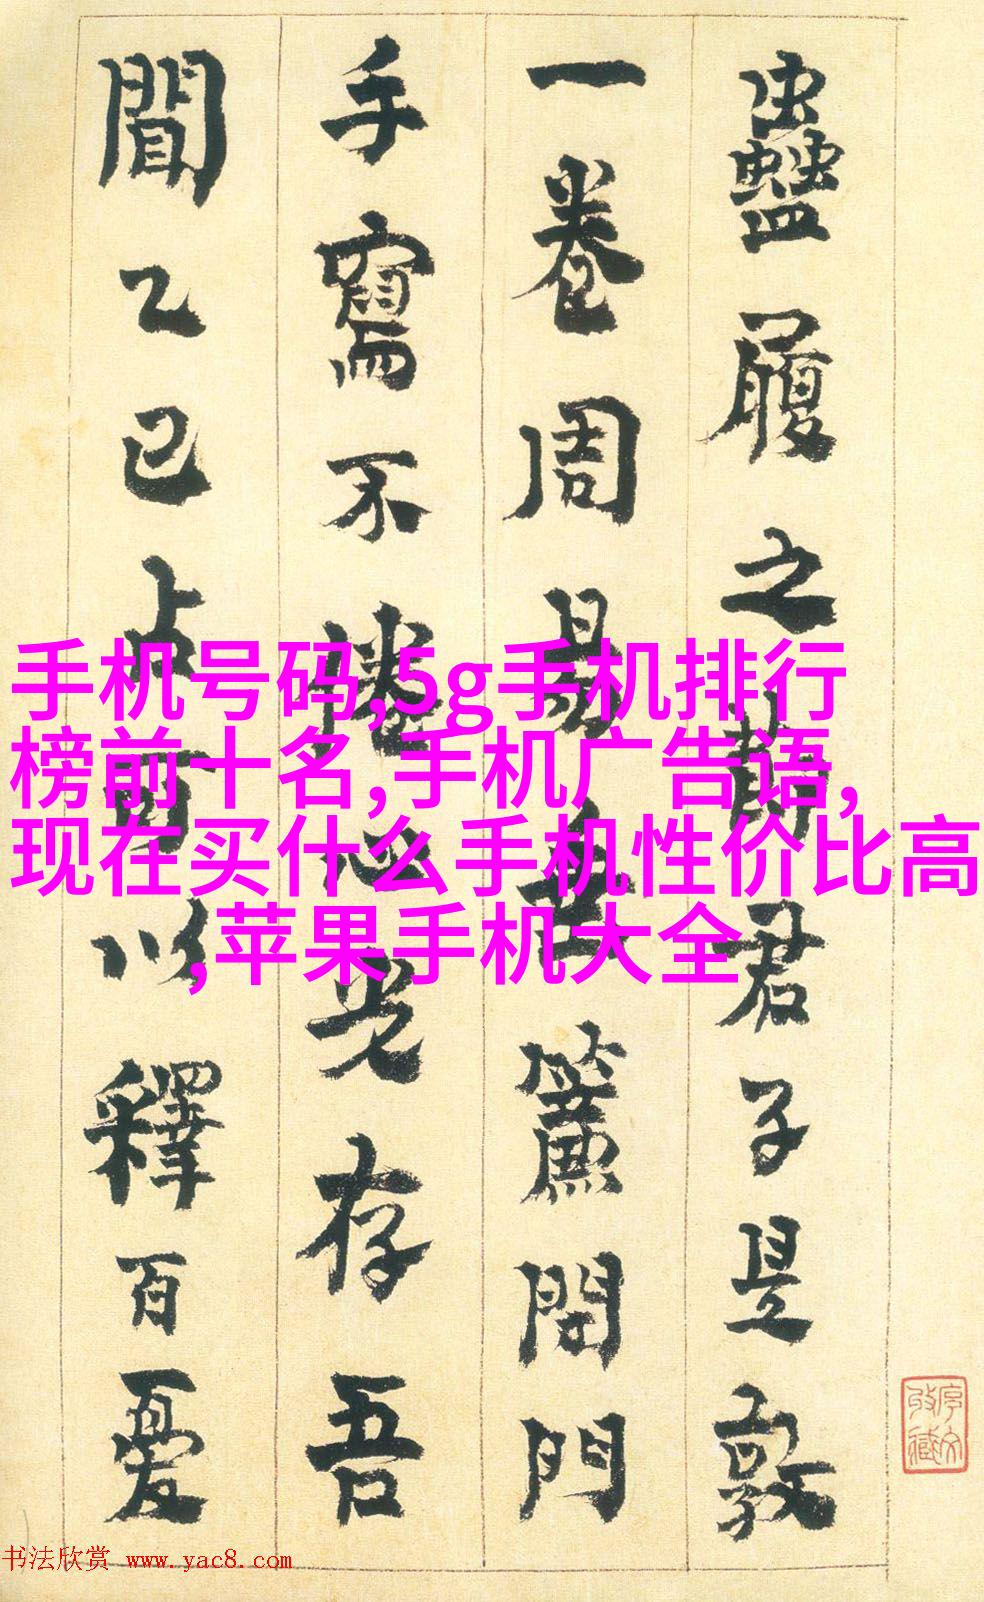 蠱履之莭君子是敦
一卷周易垂簾閉門
手寫不惓心光存吾
聞乙巳占可以釋百憂
手机号码,5g手机排行
榜前十名,手机广告语,
现在买什么手机性价比高
,苹果手机大全
书法欣赏 www.yac8.com